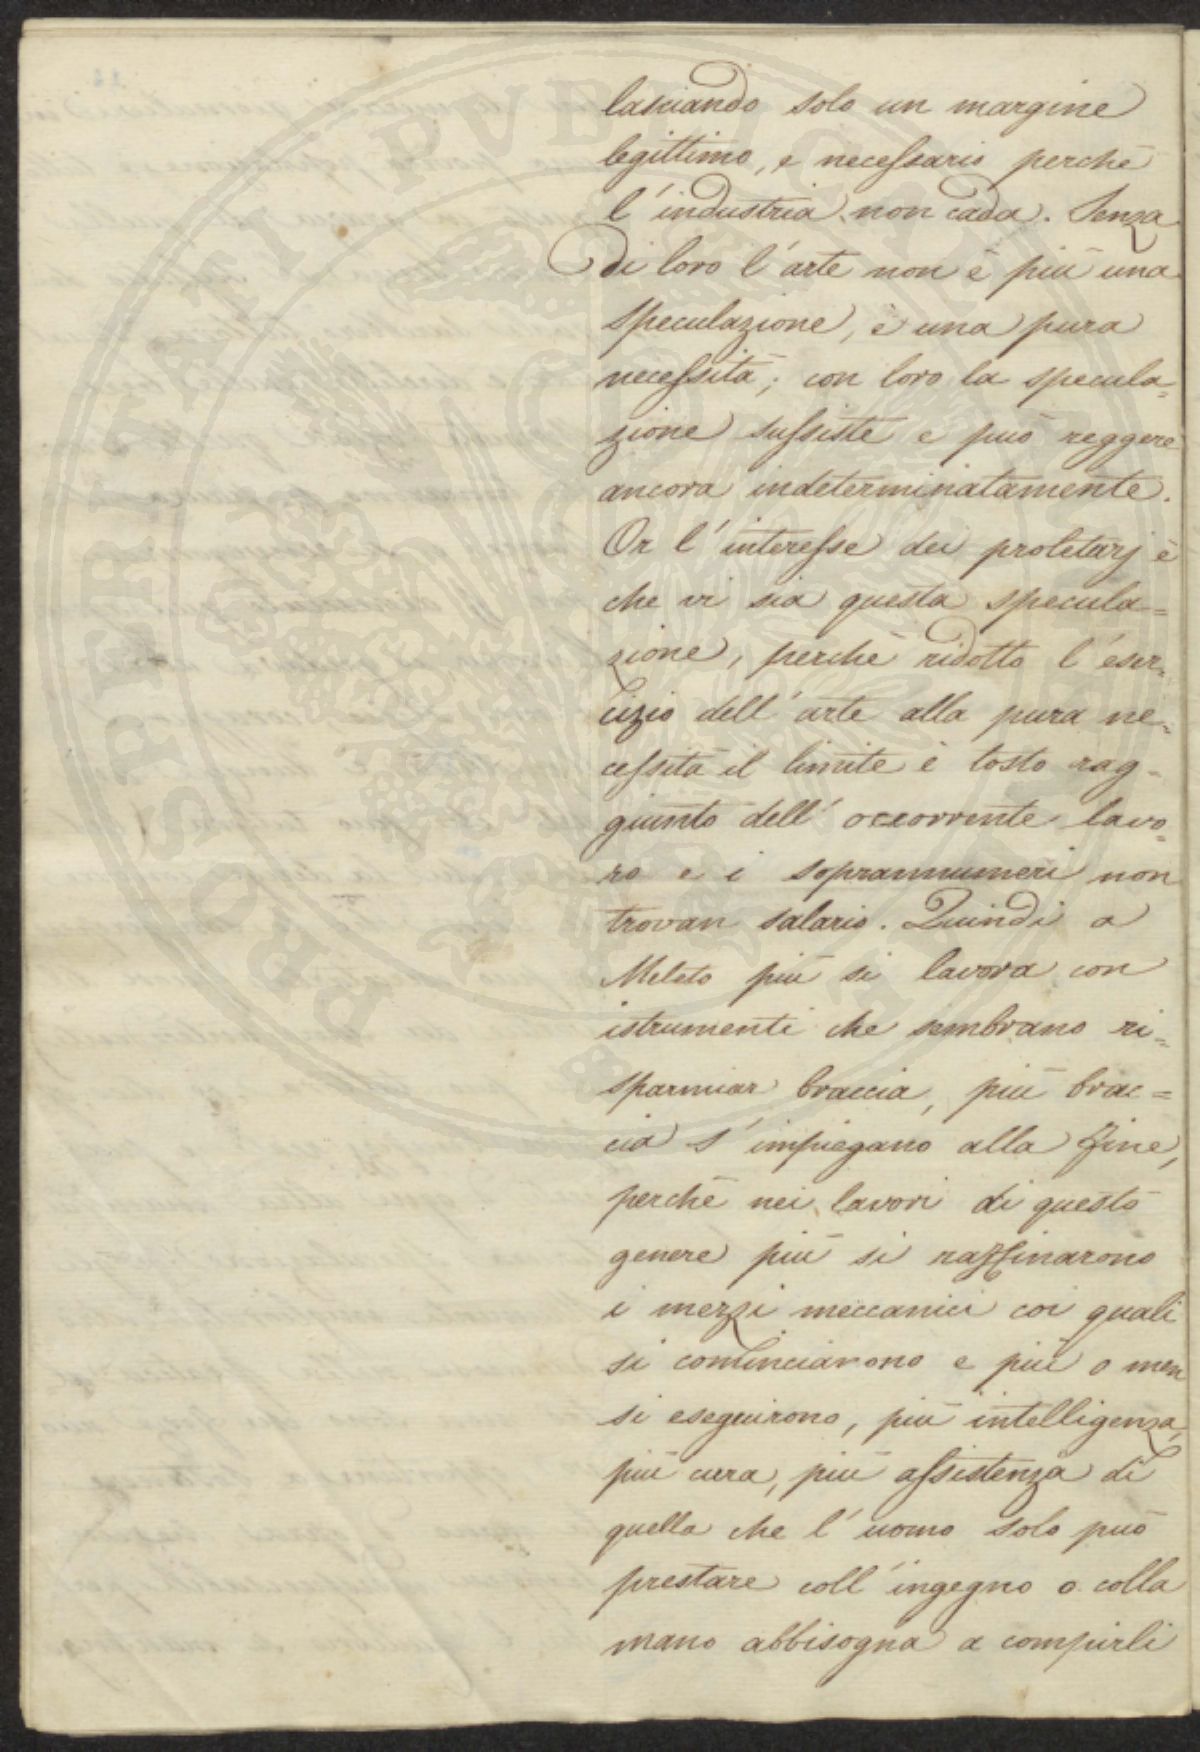 lasciando solo un margine
legittimo, e necessario perchè
l'industria non cada. Senza
di loro l'arte non è più una
speculazione, è una pura
necessità; con loro la specula=
zione sussiste e può reggere
ancora indeterminatamente.
Or l'interesse dei proletarj è
che vi sia questa specula=
zione, perchè ridotto l'eser=
cizio dell'arte alla pura ne=
cessità il limite è tosto rag=
giunto dell'occorrente lavo=
ro e i soprannumeri non
trovan salario. Quindi a
Meleto più si lavora con
istrumenti che sembrano ri=
sparmiar braccia, più brac=
cia s'impiegano alla fine,
perchè nei lavori di questo
genere più si raffinarono
i mezzi meccanici coi quali
si cominciarono e più o men
si eseguirono, più intelligenza,
più cura, più assistenza di
quella che l'uomo solo può
prestare coll'ingegno o colla
mano abbisogna a compirli
PROSPERITATI PVBLICAE